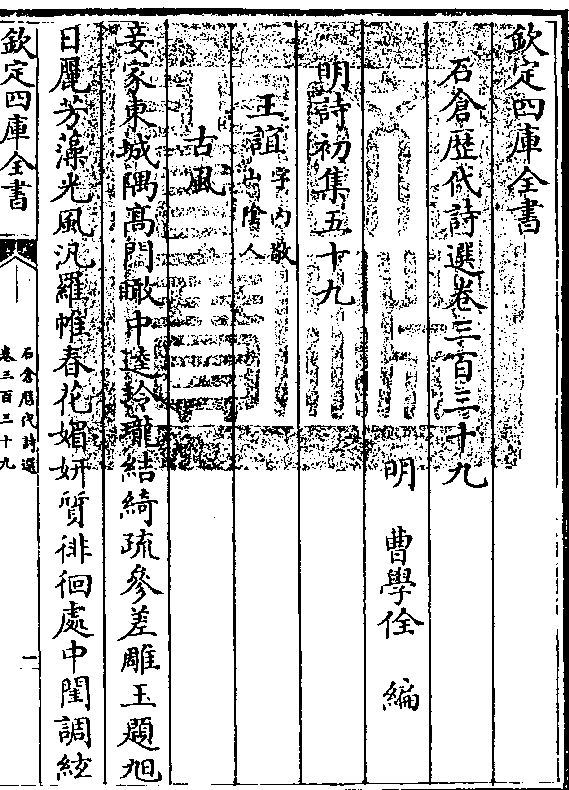 欽定四庫全書
石倉歴代詩選卷三百三十九
明 曹學佺 編
明詩初集五十九
王誼字内敬山隂人
古風
妾家東城隅髙閣瞰中逵玲瓏結綺疏參差雕玉題旭
日麗芳藻光風汎羅帷春花媚妍質徘徊處中閨調絃
欽定四庫全書
石倉歴代詩選
卷三百三十九
一